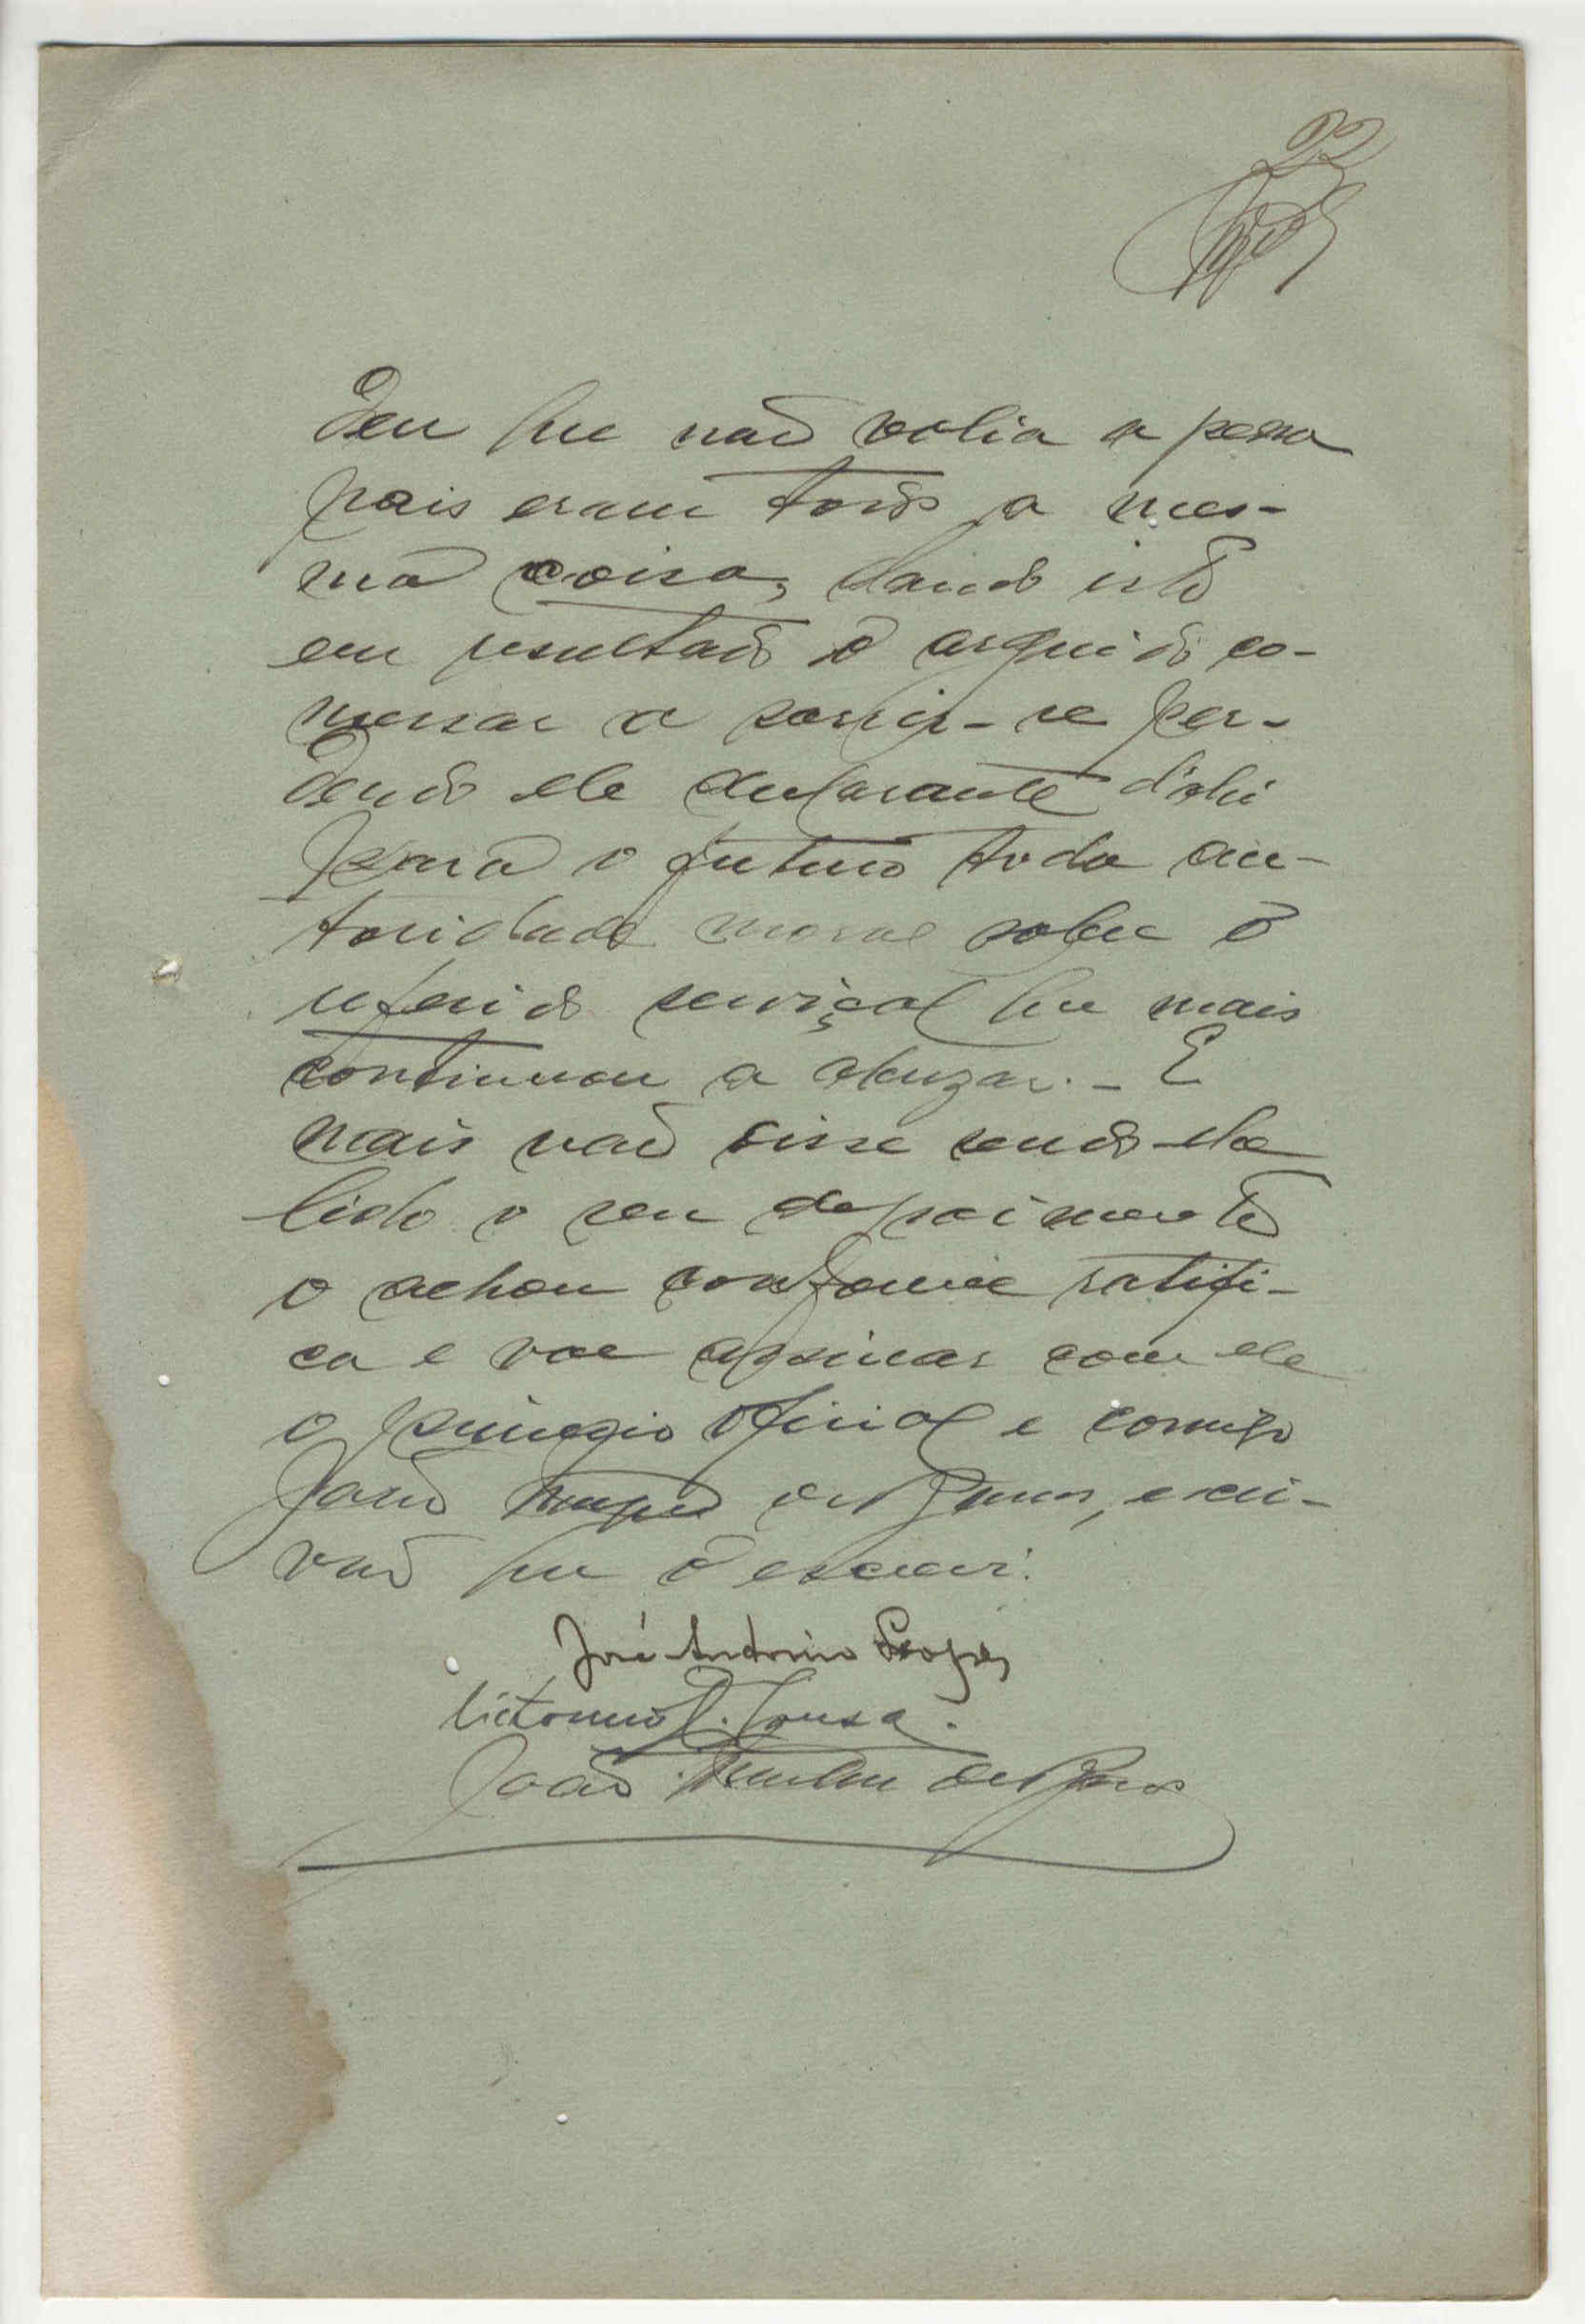 22
deu que não valia a pena
pois eram todos a mes-
ma coisa, dando isto
em resultado o arguido co-
messar a sorrir-se per-
dendo ele declarante d'ahi
para o futuro toda au-
toridade moral sobre o
referido serviçal que mais
continuou a abuzar. - E
mais não disse sendo-lhe
lido o seu depoimento
o achou conforme ratifi-
ca e vae assinar com ele
o primeiro oficial e comigo
João de escri-
vão que o escrevi.
José Antonio Lopes
Victorino Sousa.
João